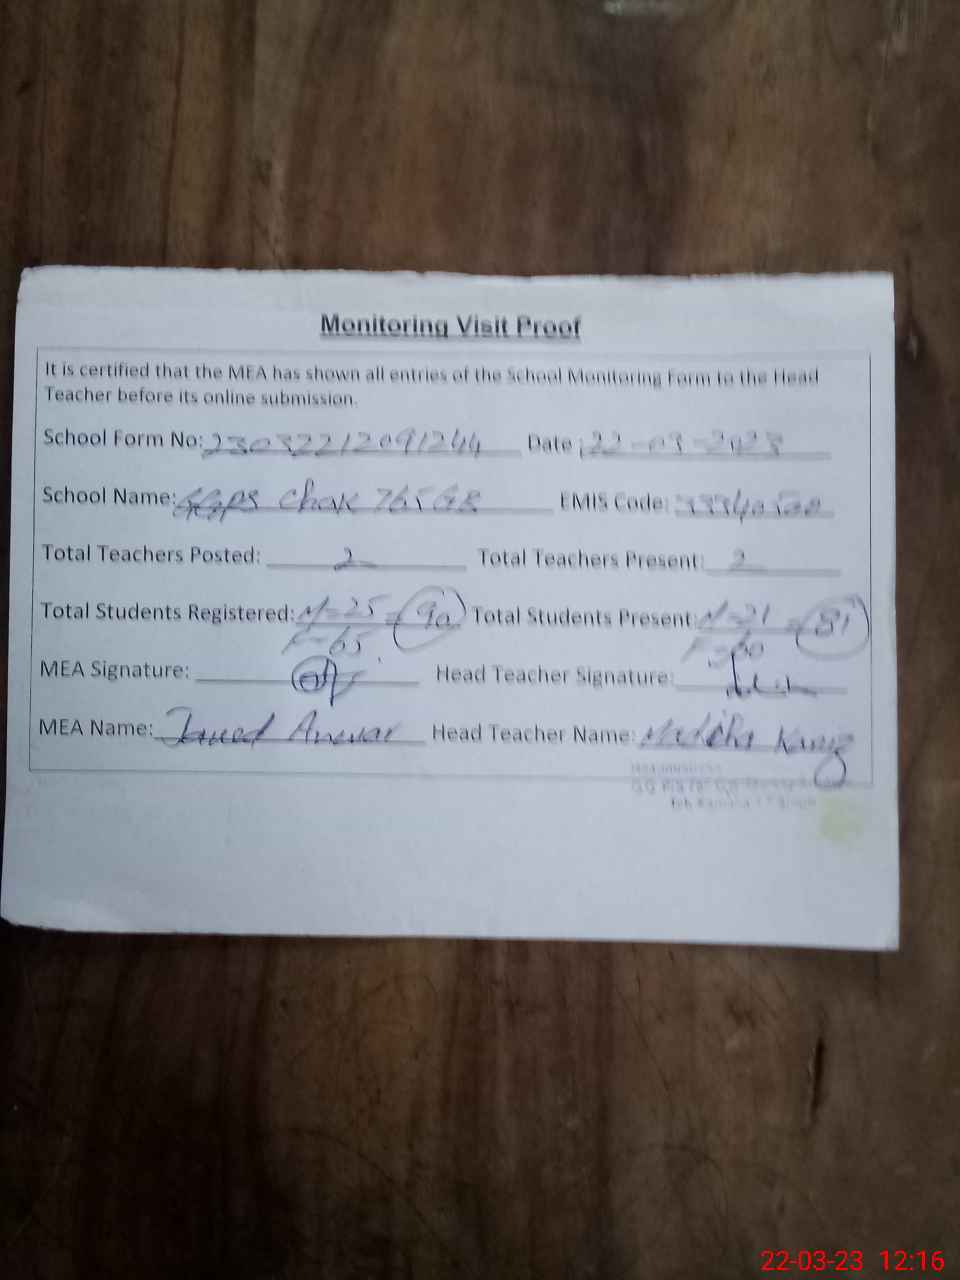 Monitoring Visit Proof
It is certified that the MEA has shown all entries of the School Monitoring Form to the Head
Teacher before its online submission.
School Form No: 23032212091244 Date: 22-03-2023
School Name: GGPS Chak 765 GB EMIS Code:
Total Teachers Posted: 2 Total Teachers Present: 2
Total Students Registered: M=25 = 90 Total Students Present: M=21 = 81
F=65 F=60
MEA Signature: Head Teacher Signature:
MEA Name: Javed Anwar Head Teacher Name: Kaniz
22-03-23 12:16